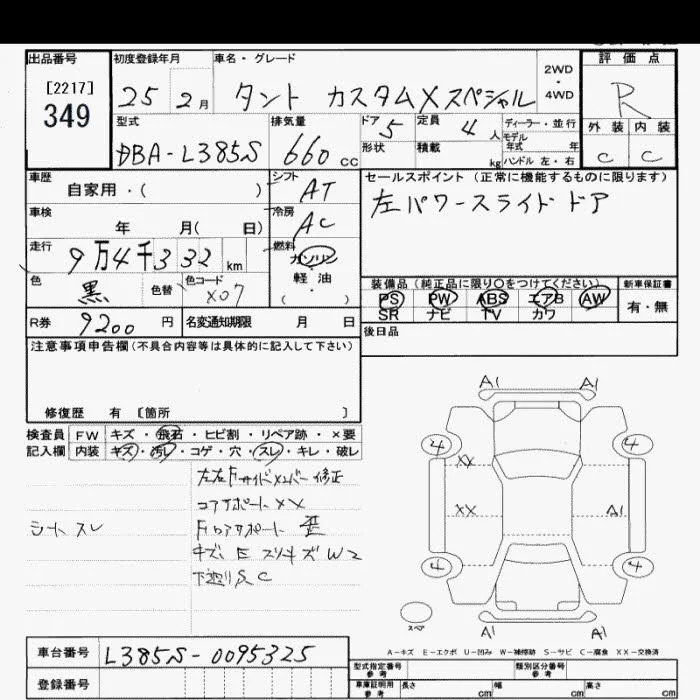 出品番号
[2217]
349
初度登録年月
25 2月
車名・グレード
タント カスタムXスペシャル
2WD
・
4WD
評価点
R
外装 内装
C C
型式
DBA-L385S
排気量
660 cc
ドア 5
形状
定員 4 人
積載 kg
ディーラー・並行
モデル
年式 年
ハンドル 左・右
車歴
自家用・( )
シフト
AT
車検
年 月( 日)
冷房
AC
走行
9万4千332 km
燃料
ガソリン
軽油
( ・ )
色
黒
色替
色コード
X07
R券 9200 円
名変通知期限 月 日
セールスポイント (正常に機能するものに限ります)
左パワースライドドア
装備品 (純正品に限り○をつけてください)
PS PW ABS エアB AW
SR ナビ TV カワ
新車保証書
有・無
後日品
注意事項申告欄(不具合内容等は具体的に記入して下さい)
修復歴 有 [箇所 ]
検査員 FW キズ・飛石・ヒビ割・リペア跡・×要
記入欄 内装 キズ・汚レ・コゲ・穴・スレ・キレ・破レ
左右Fサイドメンバー修正
コアサポートXX
シートスレ
FロアサポートS歪
キズ、E スリキズ W2
下廻りS,C
A1 A1
4 4
XX
XX A1
4 4
A1 A1
スペア
A-キズ E-エクボ U-凹み W-補修跡 S-サビ C-腐食 XX-交換済
車台番号 L385S-0095325
登録番号
型式指定番号
参考
類別区分番号
参考
車庫証明用
参考
長さ cm 幅 cm 高さ cm